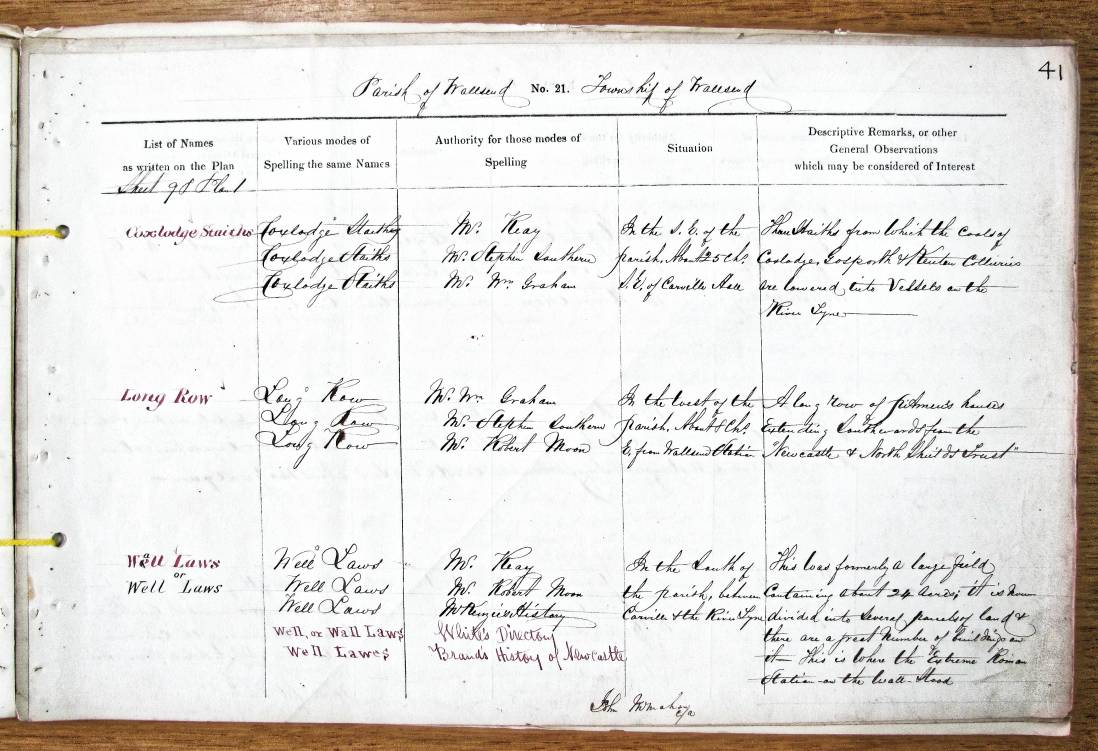 41
Parish of Wallsend No. 21. Township of Wallsend
List of Names
as written on the Plan
Various modes of
Spelling the same Names
Authority for those modes of
Spelling
Situation
Descriptive Remarks, or other
General Observations
which may be considered of Interest
Sheet 98 Plan 1
Coxlodge Staiths
Coxlodge Staiths
Coxlodge Staiths
Coxlodge Staiths
Mr. Keay
Mr. Stephen Southern
Mr. Wm. Graham
In the S.E. of the
parish, About 25 Chs.
S.E. of Carville Hall
Three Staiths from which the Coals of
Coxlodge, Gosforth & Kenton Collieries
are lowered into Vessels on the
River Tyne
Long Row
Long Row
Long Row
Long Row
Mr. Wm. Graham
Mr. Stephen Southern
Mr. Robert Moon
In the West of the
parish, About 8 Chs.
E. from Wallsend Station
A long row of pitmens houses
Extending Southwards from the
"Newcastle & North Shields Trust"
Wall Laws
or
Well Laws
Well Laws
Well Laws
Well Laws
Well, or Wall Laws
Well Lawes
Mr. Keay
Mr. Robert Moon
McKenzie's History
White's Directory
Brand's History of Newcastle
In the South of
the parish, between
Carville & the River Tyne
This was formerly a large field
Containing about 24 Acres; it is now
divided into several parcels of land &
there are a great number of buildings on
it This is Where the Extreme Roman
Station on the Wall Stood
John McMahon
c/a